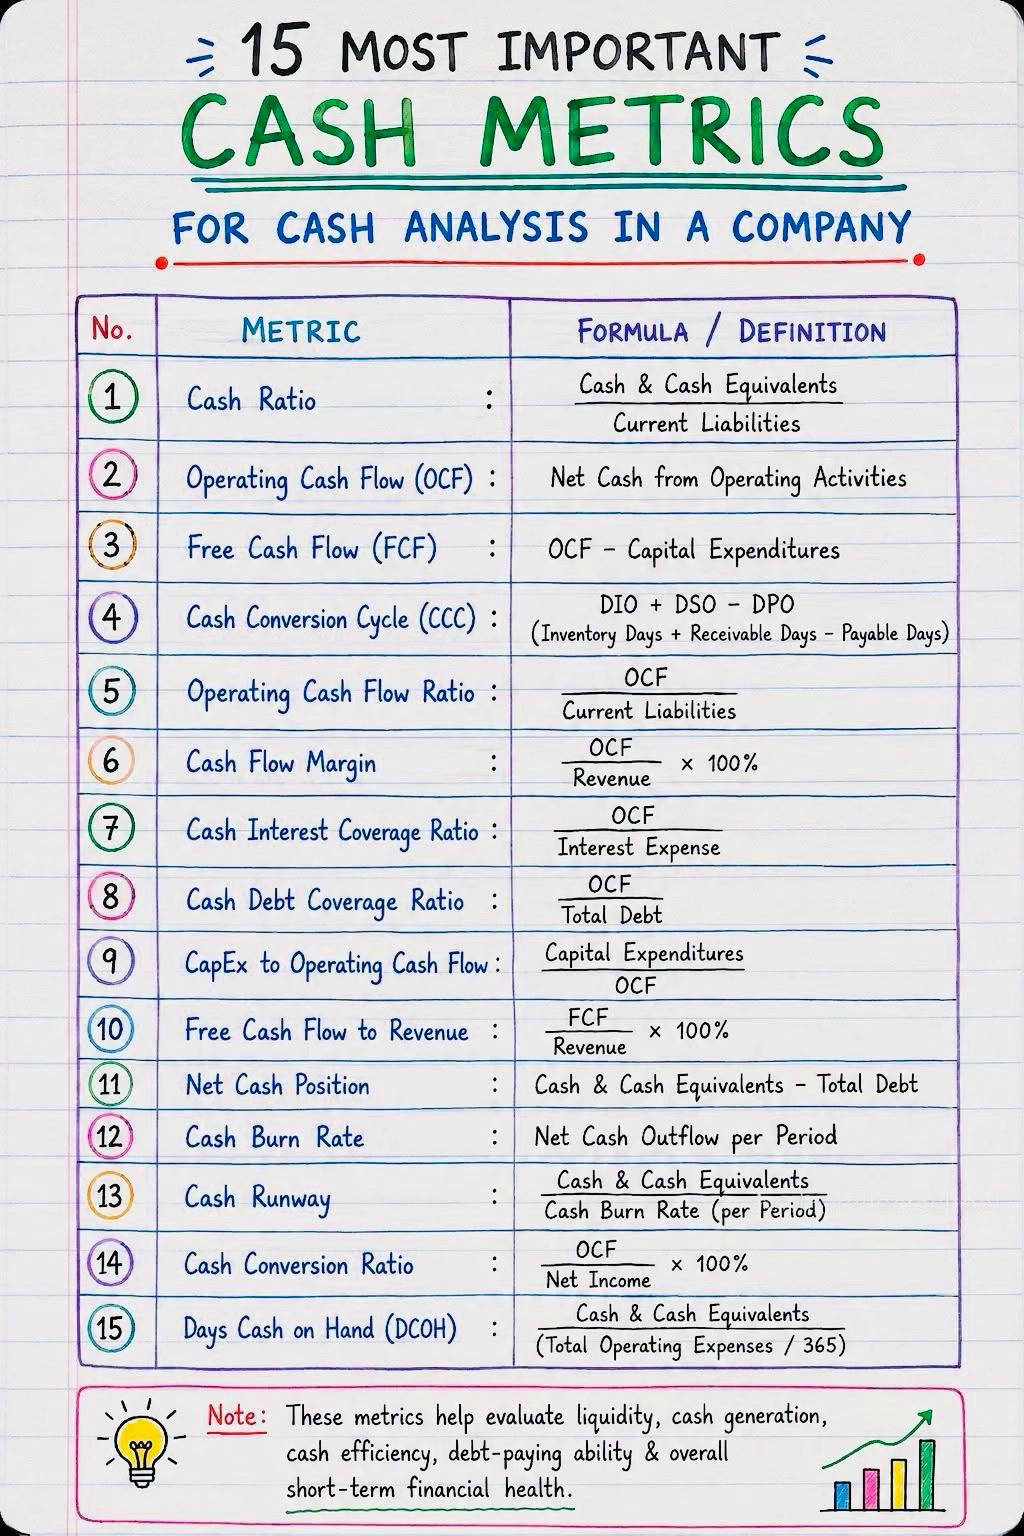 15 MOST IMPORTANT
CASH METRICS
FOR CASH ANALYSIS IN A COMPANY
No. METRIC FORMULA / DEFINITION
1 Cash Ratio : Cash & Cash Equivalents
Current Liabilities
2 Operating Cash Flow (OCF) : Net Cash from Operating Activities
3 Free Cash Flow (FCF) : OCF – Capital Expenditures
4 Cash Conversion Cycle (CCC) : DIO + DSO – DPO
(Inventory Days + Receivable Days – Payable Days)
5 Operating Cash Flow Ratio : OCF
Current Liabilities
6 Cash Flow Margin : OCF
Revenue × 100%
7 Cash Interest Coverage Ratio : OCF
Interest Expense
8 Cash Debt Coverage Ratio : OCF
Total Debt
9 CapEx to Operating Cash Flow : Capital Expenditures
OCF
10 Free Cash Flow to Revenue : FCF
Revenue × 100%
11 Net Cash Position : Cash & Cash Equivalents – Total Debt
12 Cash Burn Rate : Net Cash Outflow per Period
13 Cash Runway : Cash & Cash Equivalents
Cash Burn Rate (per Period)
14 Cash Conversion Ratio : OCF
Net Income × 100%
15 Days Cash on Hand (DCOH) : Cash & Cash Equivalents
(Total Operating Expenses / 365)
Note: These metrics help evaluate liquidity, cash generation,
cash efficiency, debt-paying ability & overall
short-term financial health.